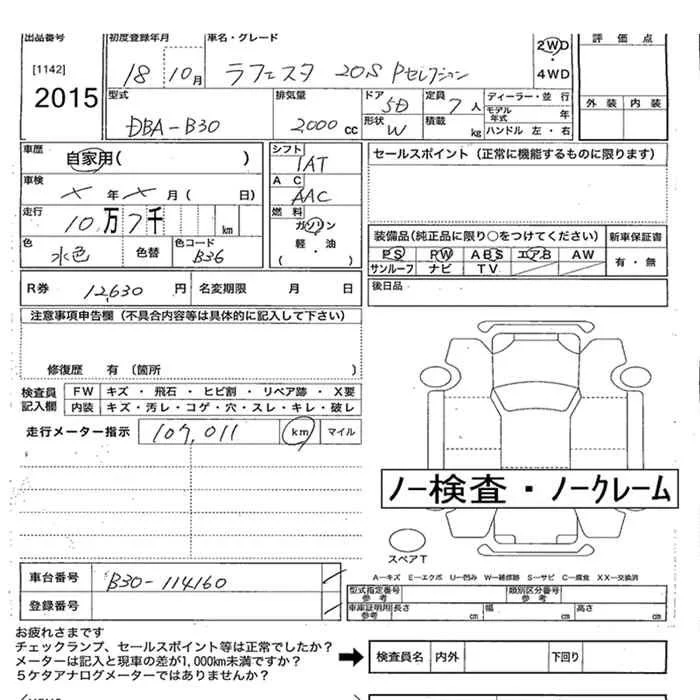 出品番号 初度登録年月 車名・グレード 2WD 評価点
[1142] 18 10月 ラフェスタ 20S Pセレクション ・
4WD
2015 型式 排気量 ドア 5D 定員 7人 ディーラー・並行 外装 内装
DBA-B30 2,000cc 形状 W 積載 kg モデル年式 年
ハンドル 左・右
車歴 自家用( ) シフト 1AT セールスポイント(正常に機能するものに限ります)
車検 × 年 × 月( 日) AC AAC
走行 10万7千 km 燃料 ガソリン 装備品(純正品に限り○をつけてください) 新車保証書
色 水色 色替 色コード B36 軽・油 PS PW ABS エアB AW 有・無
( ) サンルーフ ナビ TV
R券 12,630円 名変期限 月 日 後日品
注意事項申告欄(不具合内容等は具体的に記入して下さい)
修復歴 有(箇所 )
検査員 FW キズ・飛石・ヒビ割・リペア跡・X要
記入欄 内装 キズ・汚レ・コゲ・穴・スレ・キレ・破レ
走行メーター指示 107,011 km マイル
ノー検査・ノークレーム
スペアT
A-キズ E-エクボ U-凹み W-補修跡 S-サビ C-腐食 XX-交換済
車台番号 B30-114160 型式指定番号 参考 類別区分番号 参考
登録番号 車庫証明用 参考 長さ cm 幅 cm 高さ cm
お疲れさまです
チェックランプ、セールスポイント等は正常でしたか?
メーターは記入と現車の差が1,000km未満ですか? ➡ 検査員名 内外 下回り
5ケタアナログメーターではありませんか?